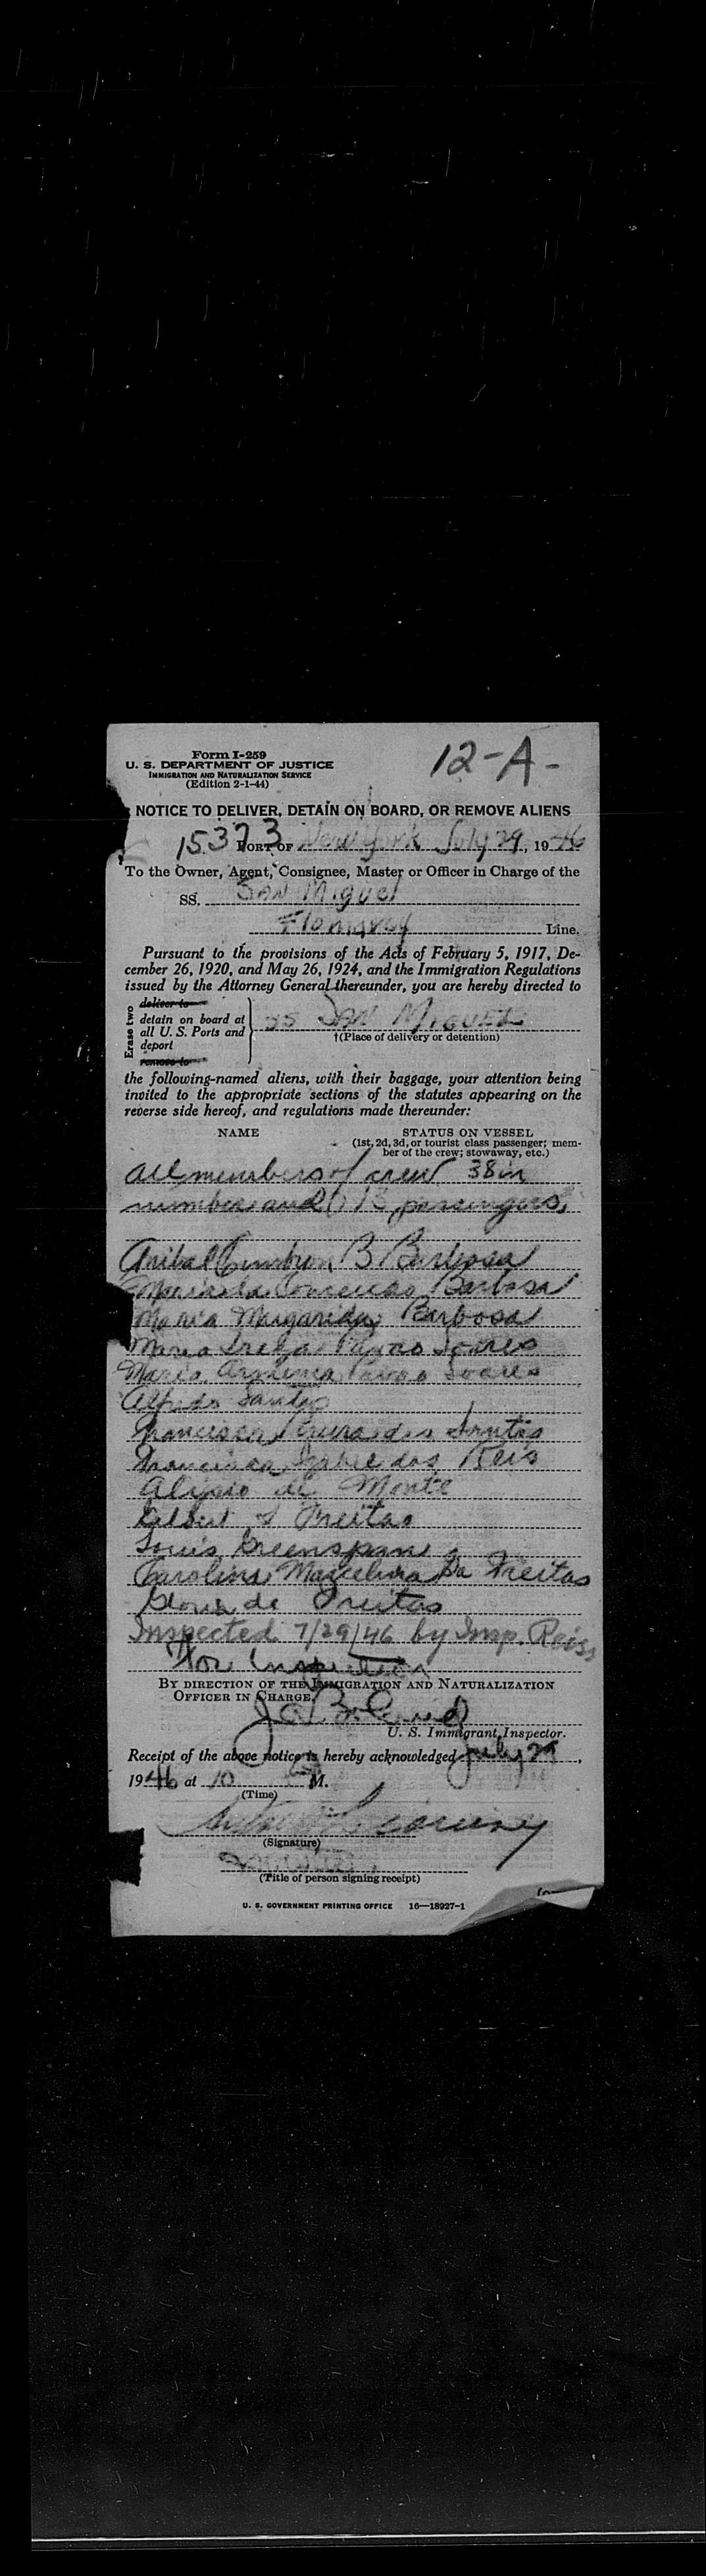 Form I-259
12-A-
U. S. DEPARTMENT OF JUSTICE
IMMIGRATION AND NATURALIZATION SERVICE
(Edition 2-1-44)
NOTICE TO DELIVER, DETAIN ON BOARD, OR REMOVE ALIENS
15373 PORT OF New York July 29, 1946
To the Owner, Agent, Consignee, Master or Officer in Charge of the
SS. San Miguel
Line.
Pursuant to the provisions of the Acts of February 5, 1917, De-
cember 26, 1920, and May 26, 1924, and the Immigration Regulations
issued by the Attorney General thereunder, you are hereby directed to
Erase two
deliver to
detain on board at
all U. S. Ports and
deport
remove to
SS SAN MIGUEL
†(Place of delivery or detention)
the following-named aliens, with their baggage, your attention being
invited to the appropriate sections of the statutes appearing on the
reverse side hereof, and regulations made thereunder:
NAME STATUS ON VESSEL
(1st, 2d, 3d, or tourist class passenger; mem-
ber of the crew; stowaway, etc.)
all members of crew 38 in
number and 13 passengers,
Anibal B Barbosa
Barbosa
Maria Margarida Barbosa
Maria Soares
Maria Soares
Alfredo
Francisco Santos
Francisca dos Reis
de Monte
Freitas
Louis Greenspan
Carolina Da Freitas
de Freitas
Inspected 7/29/46 by Insp. Reiss
For Inspection
BY DIRECTION OF THE IMMIGRATION AND NATURALIZATION
OFFICER IN CHARGE.
U. S. Immigrant Inspector.
Receipt of the above notice is hereby acknowledged July 29,
1946 at 10 M.
(Time)
(Signature)
(Title of person signing receipt)
U. S. GOVERNMENT PRINTING OFFICE 16—18927-1